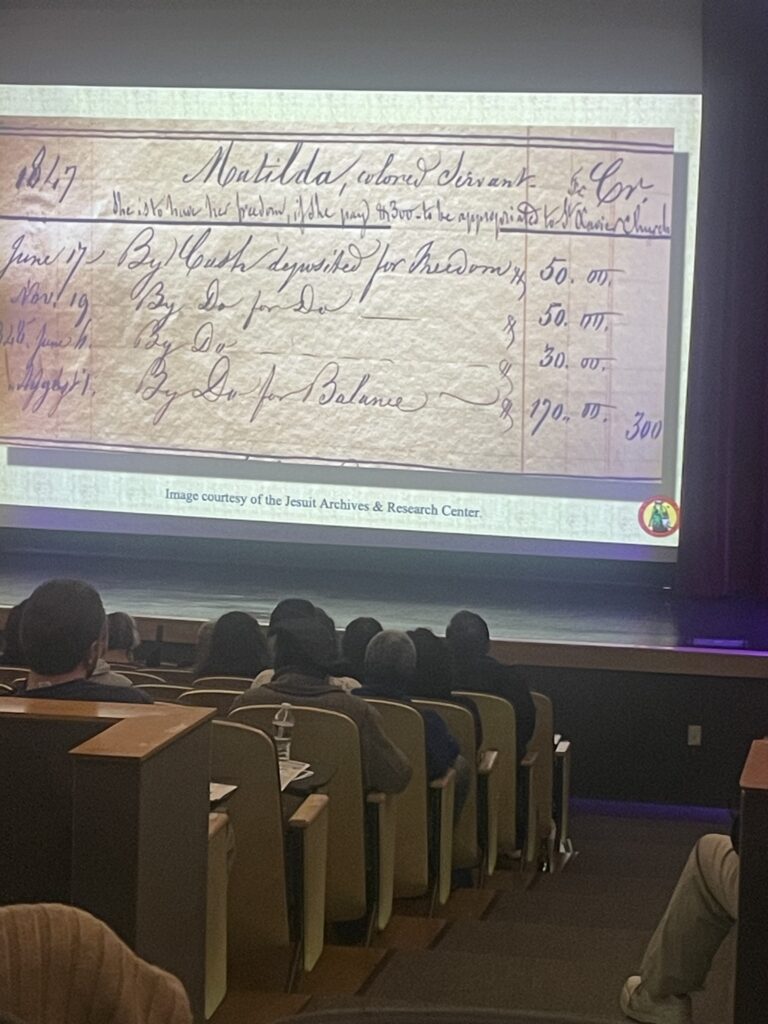 1847 Matilda, colored Servant. Cr.
She is to have her freedom, if she pay $300 - to be appropriated to St Xavier Church
June 17 By Cash deposited for Freedom $ 50.00.
Nov. 19 By Do for Do $ 50.00.
June 6. By Do $ 30.00.
By Do for Balance $ 170.00. 300
Image courtesy of the Jesuit Archives & Research Center.